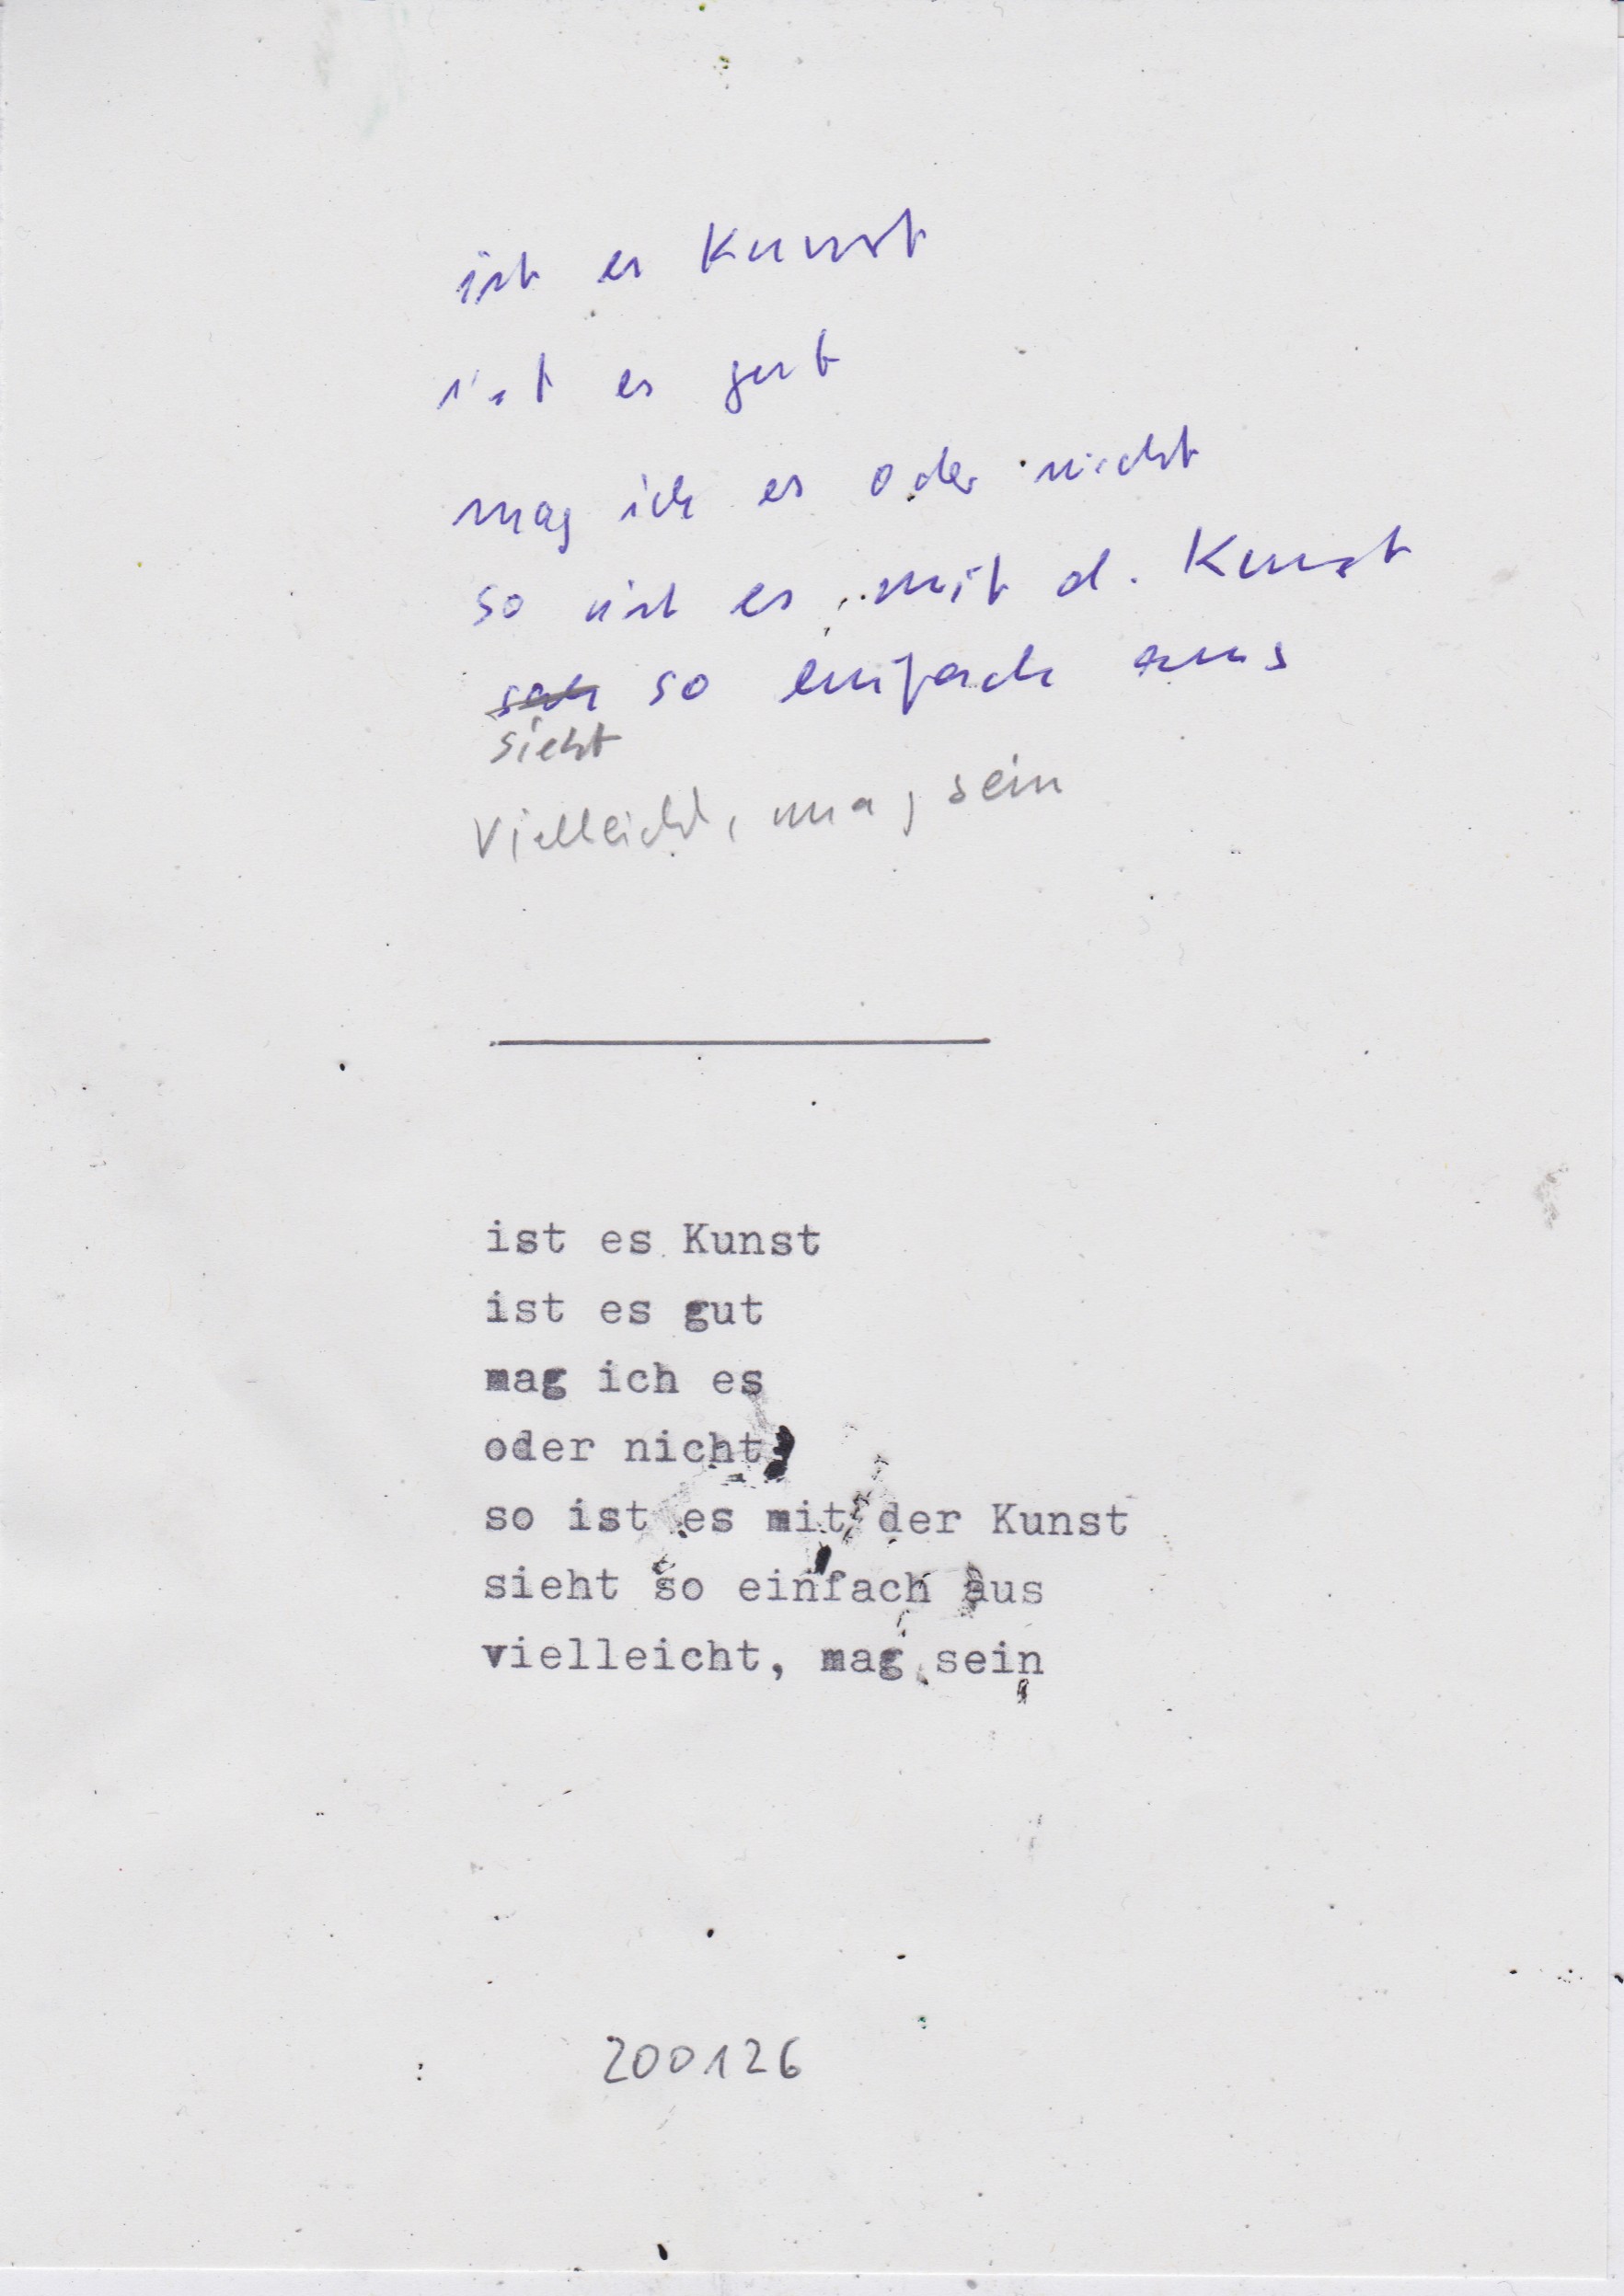 ist es Kunst
ist es gut
mag ich es oder nicht
so ist es mit d. Kunst
sah so einfach aus
sieht
Vielleicht, mag sein
ist es Kunst
ist es gut
mag ich es
oder nicht
so ist es mit der Kunst
sieht so einfach aus
vielleicht, mag sein
200126